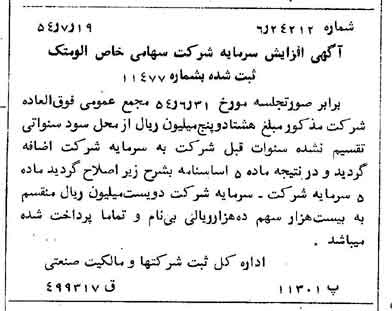 شماره ۶٫۲۴۲۱۲ ۵۴٫۷٫۱۹
آگهی افزایش سرمایه شرکت سهامی خاص الومتک
ثبت شده بشماره ۱۱۴۷۷
برابر صورتجلسه مورخ ۵۴٫۶٫۳۱ مجمع عمومی فوق‌العاده
شرکت مذکور مبلغ هشتادوپنج‌میلیون ریال از محل سود سنواتی
تقسیم نشده سنوات قبل شرکت به سرمایه شرکت اضافه
گردید و در نتیجه ماده ۵ اساسنامه بشرح زیر اصلاح گردید ماده
۵ سرمایه شرکت ـ سرمایه شرکت دویست‌میلیون ریال منقسم
به بیست‌هزار سهم ده‌هزارریالی بی‌نام و تماما پرداخت شده
میباشد .
اداره کل ثبت شرکتها و مالکیت صنعتی
پ ۱۱۳۰۱ ق ۴۹۹۳۱۷